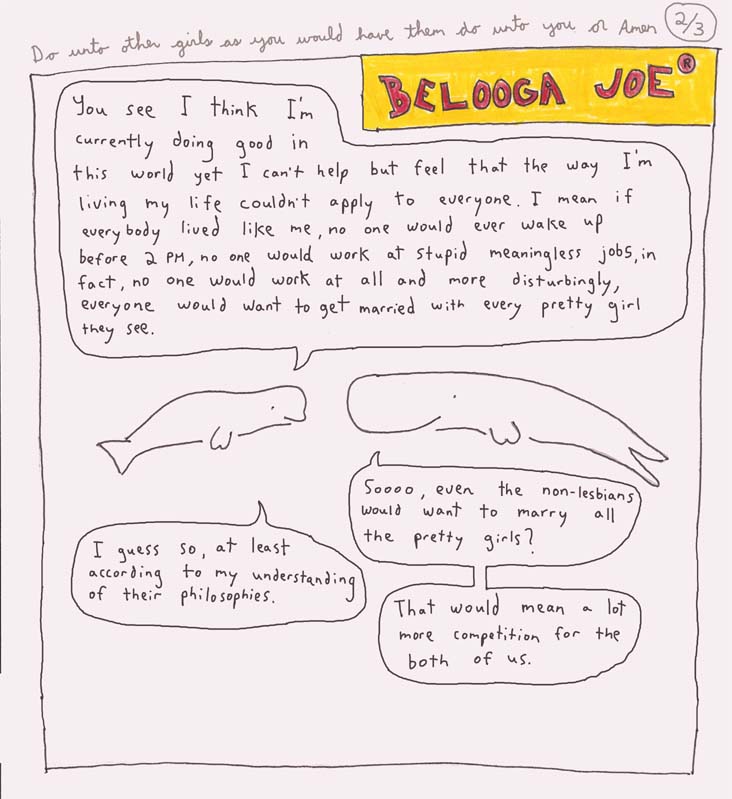 Do unto other girls as you would have them do unto you or Amen
2/3
BELOOGA JOE ®
You see I think I'm
currently doing good in
this world yet I can't help but feel that the way I'm
living my life couldn't apply to everyone. I mean if
everybody lived like me, no one would ever wake up
before 2 PM, no one would work at stupid meaningless jobs, in
fact, no one would work at all and more disturbingly,
everyone would want to get married with every pretty girl
they see.
Soooo, even the non-lesbians
would want to marry all
the pretty girls?
I guess so, at least
according to my understanding
of their philosophies.
That would mean a lot
more competition for the
both of us.